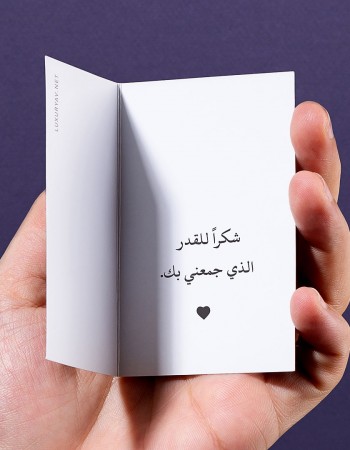 شكراً للقدر
الذي جمعني بك.